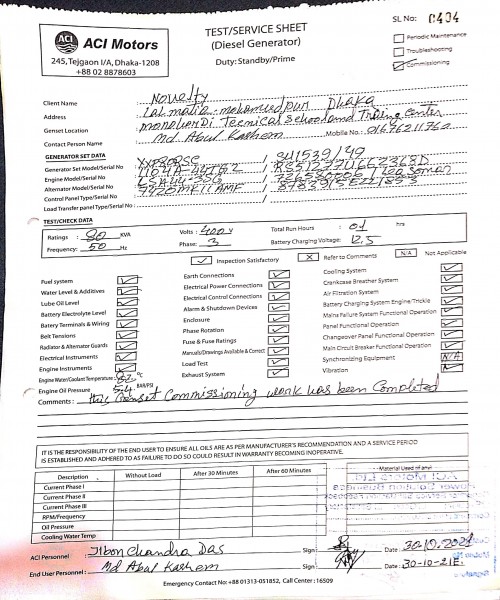 ACI Motors
245, Tejgaon I/A, Dhaka-1208
+88 02 8878603
TEST/SERVICE SHEET
(Diesel Generator)
Duty: Standby/Prime
SL No: 0404
Periodic Maintenance
Troubleshooting
Commissioning
Client Name : Novelty
Address : Lalmatia - mohammadpur Dhaka
Genset Location : monohardi Tecnical School and Traing center
Contact Person Name : Md Abul Kashem Mobile No.:
GENERATOR SET DATA
Generator Set Model/Serial No :
Engine Model/Serial No :
Alternator Model/Serial No :
Control Panel Type/Serial No :
Load Transfer panel Type/Serial No :
TEST/CHECK DATA
Ratings : 80 KVA Volts : 400 V Total Run Hours : 01 hrs
Frequency: 50 Hz Phase : 3 Battery Charging Voltage: 12.5
Inspection Satisfactory X Refer to Comments N/A Not Applicable
Fuel system
Water Level & Additives
Lube Oil Level
Battery Electrolyte Level
Battery Terminals & Wiring
Belt Tensions
Radiator & Alternator Guards
Electrical Instruments
Engine Instruments
Engine Water/Coolant Temperature : 82 °C
Engine Oil Pressure 54 BAR/PSI
Earth Connections
Electrical Power Connections
Electrical Control Connections
Alarm & Shutdown Devices
Enclosure
Phase Rotation
Fuse & Fuse Ratings
Manuals/Drawings Available & Correct
Load Test
Exhaust System
Cooling System
Crankcase Breather System
Air Filtration System
Battery Charging System Engine/Trickle
Mains Failure System Functional Operation
Panel Functional Operation
Changeover Panel Functional Operation
Main Circuit Breaker Functional Operation
Synchronizing Equipment N/A
Vibration
Comments : this Genset Commissioning work has been Completed
IT IS THE RESPONSIBILITY OF THE END USER TO ENSURE ALL OILS ARE AS PER MANUFACTURER'S RECOMMENDATION AND A SERVICE PERIOD
IS ESTABLISHED AND ADHERED TO AS FAILURE TO DO SO COULD RESULT IN WARRANTY BECOMING INOPERATIVE.
Description Without Load After 30 Minutes After 60 Minutes Material Used if any
Current Phase I
Current Phase II
Current Phase III
RPM/Frequency
Oil Pressure
Cooling Water Temp
ACI Personnel : Jibon Chandra Das Sign : Date : 30.10.2021
End User Personnel : Md Abul Kashem Sign : Date : 30-10-21
Emergency Contact No: +88 01313-051852, Call Center : 16509